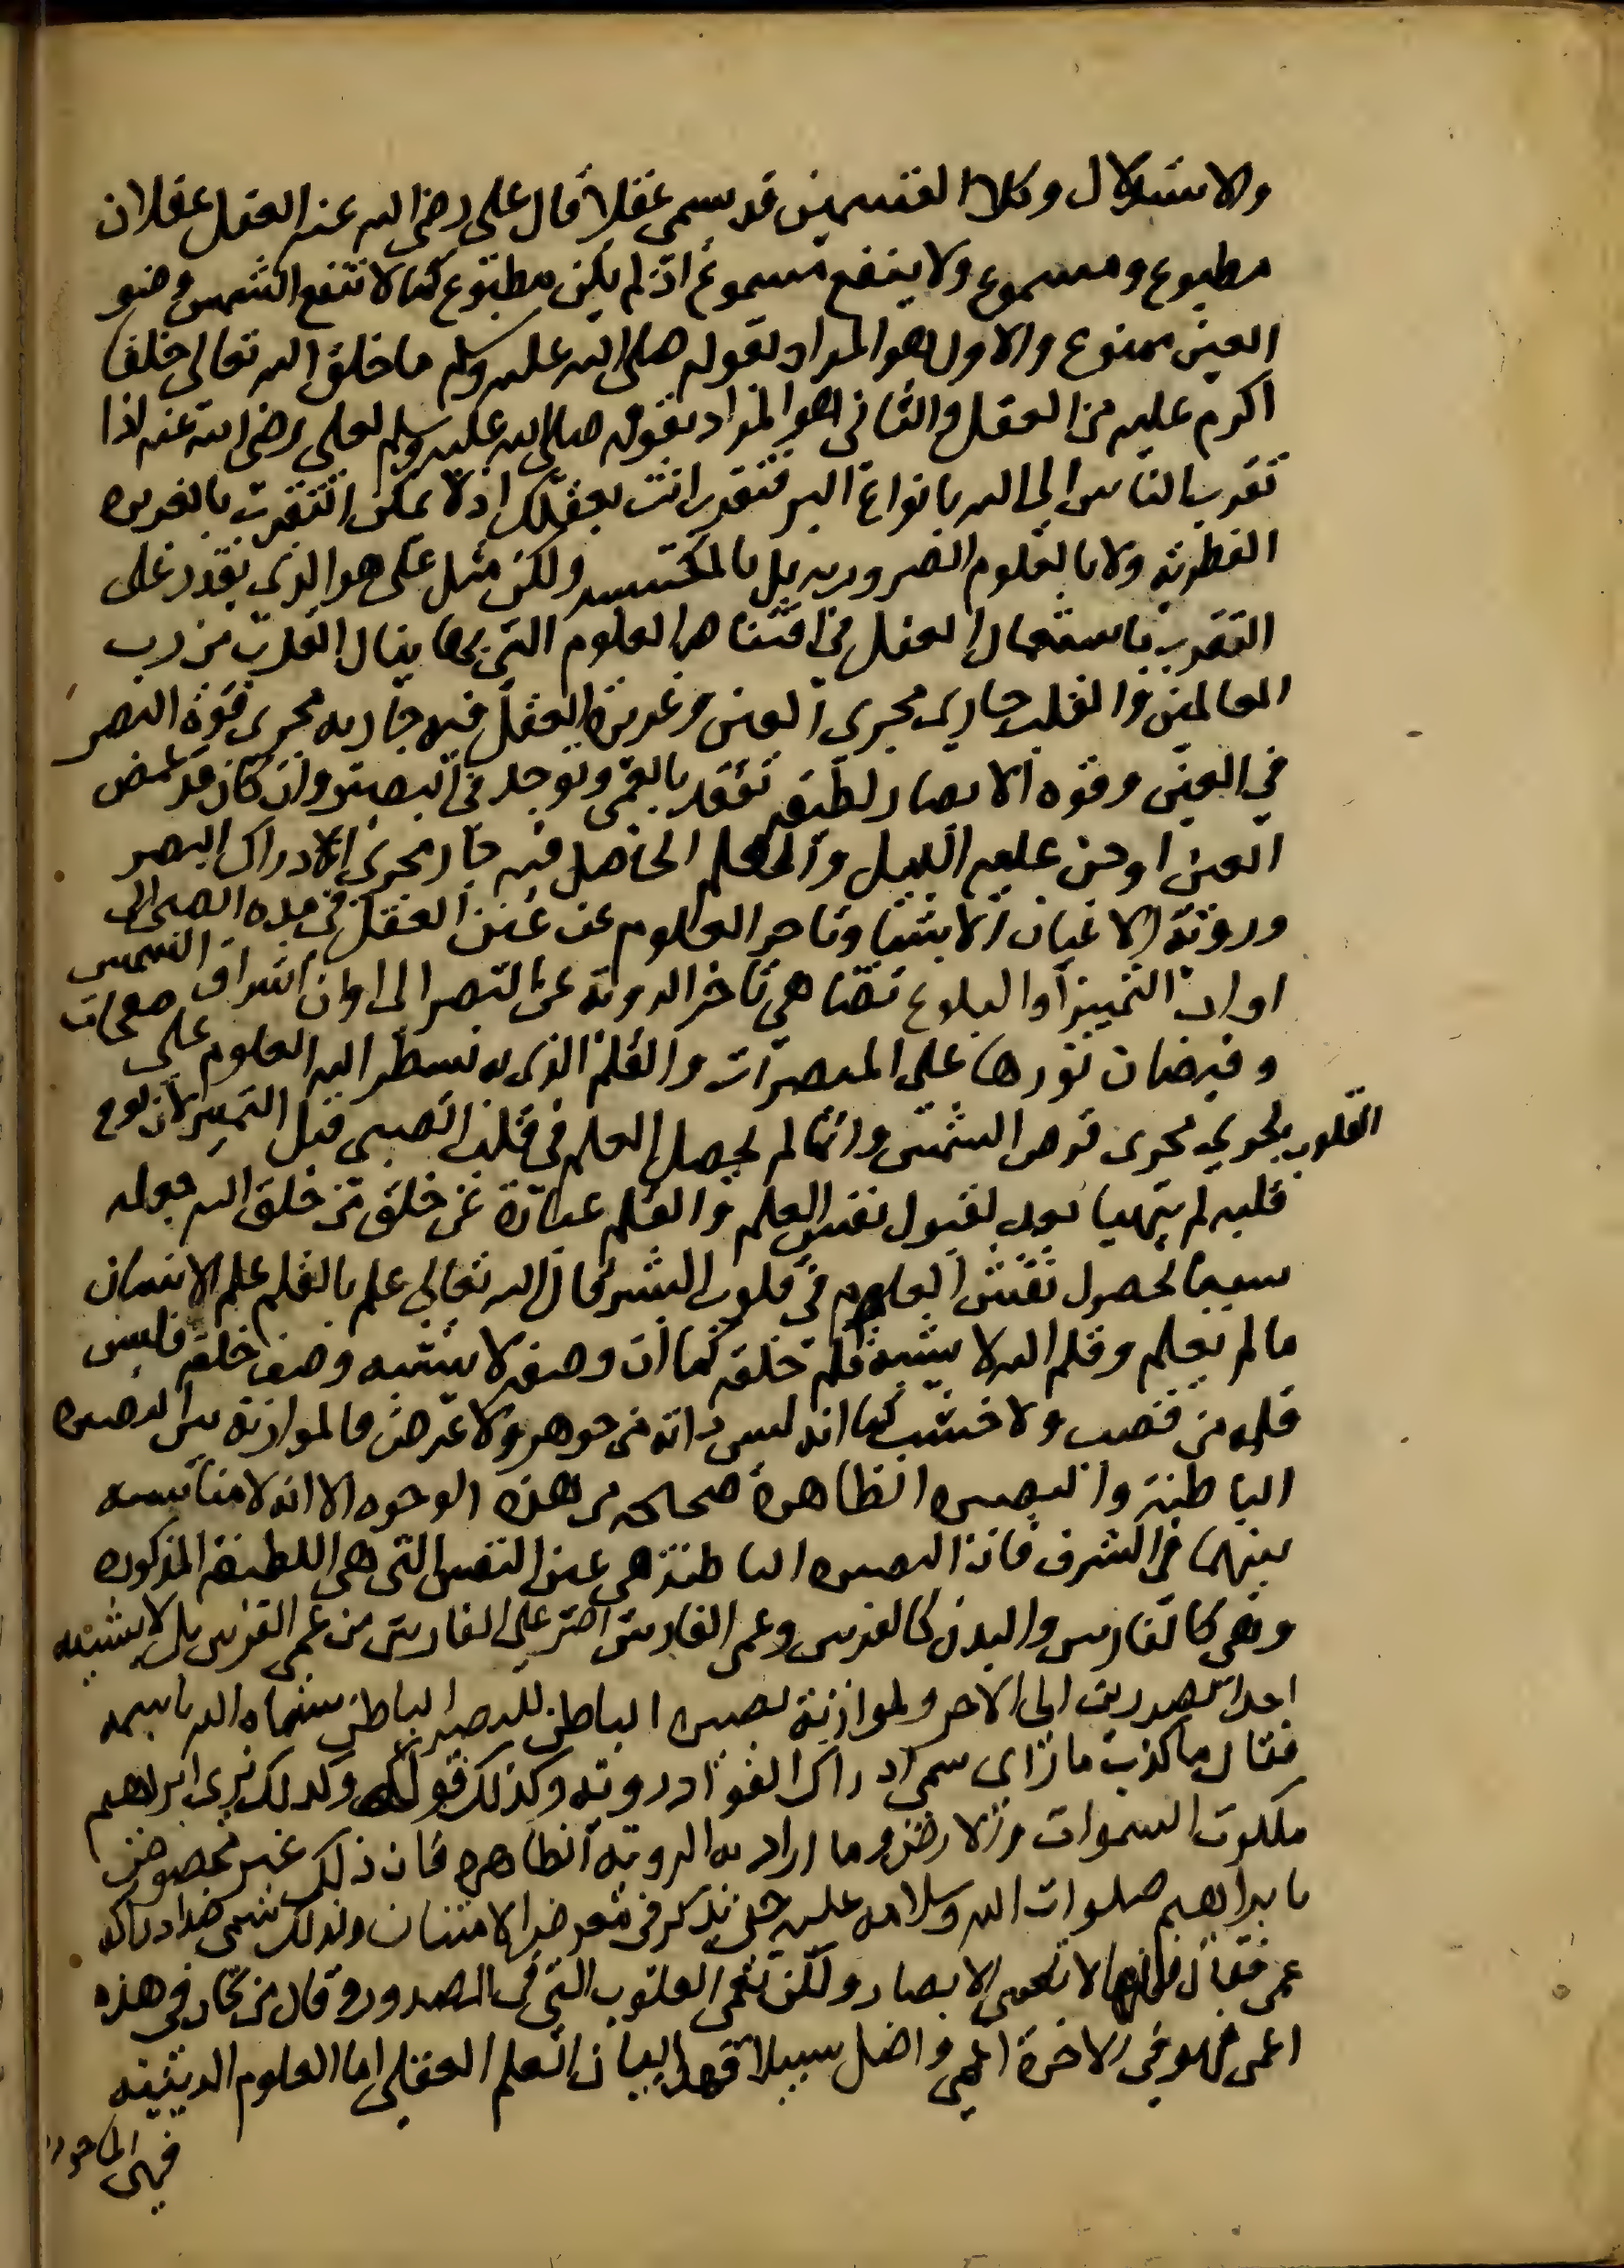 والاستدلال وكلا القسمين قد يسمى عقلا قال على رضى الله عنه العقل عقلان
مطبوع ومسموع ولا ينفع مسموع اذ لم يكن مطبوع كما لا تنفع الشمس وضو
العين ممنوع والاول هو المراد بقوله صلى الله عليه وسلم ما خلق الله تعالى خلقا
اكرم عليه من العقل والثانى هو المراد بقوله صلى الله عليه وسلم لعلى رضى الله عنه اذا
تقرب الناس الى الله بانواع البر فتقرب انت بعقلك اذ لا يمكن التقرب بالغريزه
الفطرية ولا بالعلوم الضروريه بل بالمكتسبه ولكن مثل على هو الذى يقدر على
التقرب باستعمال العقل فى اقتناص العلوم التى بها ينال القرب من رب
العالمين والقلب جارى مجرى العين وغريزة العقل فيه جاريه مجرى قوة البصر
في العين وقوه الابصار لطيفه تفقد بالعمى وتوجد فى البصير وان كان قد غمض
العين او جن عليه الليل والعلم الحاصل فيه جار مجرى الادراك البصر
ورؤية الاعيان الاشيا وتاخر العلوم عن عين العقل فى مده الصبى الى
اوان التميز او البلوغ تضاهى تاخر الروية عن البصر الى اوان اشراق الشمس
وفيضان نورها على المبصرات والقلم الذى به نسطر الله العلوم على صفحات
القلوب يجرى مجرى قرص الشمس وانما لم يحصل العلم فى قلب الصبى قبل التميز لان لوح
قلبه لم يتهيا بعد لقبول نقش العلم والقلم عبارة عن خلق من خلق الله جعله
سببا لحصول نقش العلوم فى قلوب البشر قال الله تعالى علم بالقلم علم الانسان
مالم يعلم وقلم الله لا يشبه قلم خلقه كما ان وصفه لا يشبه وصف خلقه فليس
قلمه من قصب ولا خشب كما انه ليس ذاته من جوهر ولا عرض فالموازنة بين البصيره
الباطنة والبصيره الظاهرة صحيحه من هذه الوجوه الا انه لا مناسبه
بينهما فى الشرف فان البصيره الباطنة هى عين النفس التى هى اللطيفة المذكوره
وهى كالفارس والبدن كالفرس وعمى الفارس اضر على الفارس من عمى الفرس بل لا يشبه
احد الضررين الى الاخر ولموازنة بصيره الباطن للبصر الباطن سماه الله باسمه
فقال ما كذب ما راى سمى ادراك الفواد روية وكذلك قوله وكذلك نرى ابراهيم
ملكوت السموات والارض وما اراد به الروية الظاهره فان ذلك غير مخصوص
بابراهيم صلوات الله وسلامه عليه حتى يذكر فى معرض الامتنان ولذلك سمى ضد ادراكه
عمى فقال فانها لا تعمى الابصار ولكن تعمى القلوب التى فى الصدور وقال من كان في هذه
اعمى فهو فى الاخرة اعمى واضل سبيلا فهذا بيان العلم العقلى اما العلوم الدينيه
فهى الماخوذه